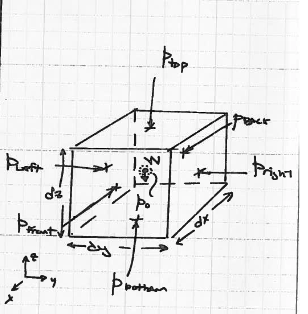 Ptop
PBACK
Pleft
W
Pright
dz
P0
dx
Pfront
dy
Pbottom
z
y
x